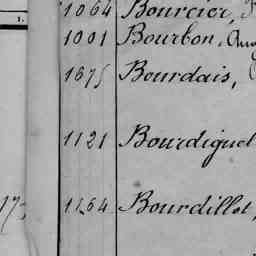 1064 Bourcier,
1001 Bourbon, Aug
1675 Bourdais,
1121 Bourdiguel
1164 Bourdillot,